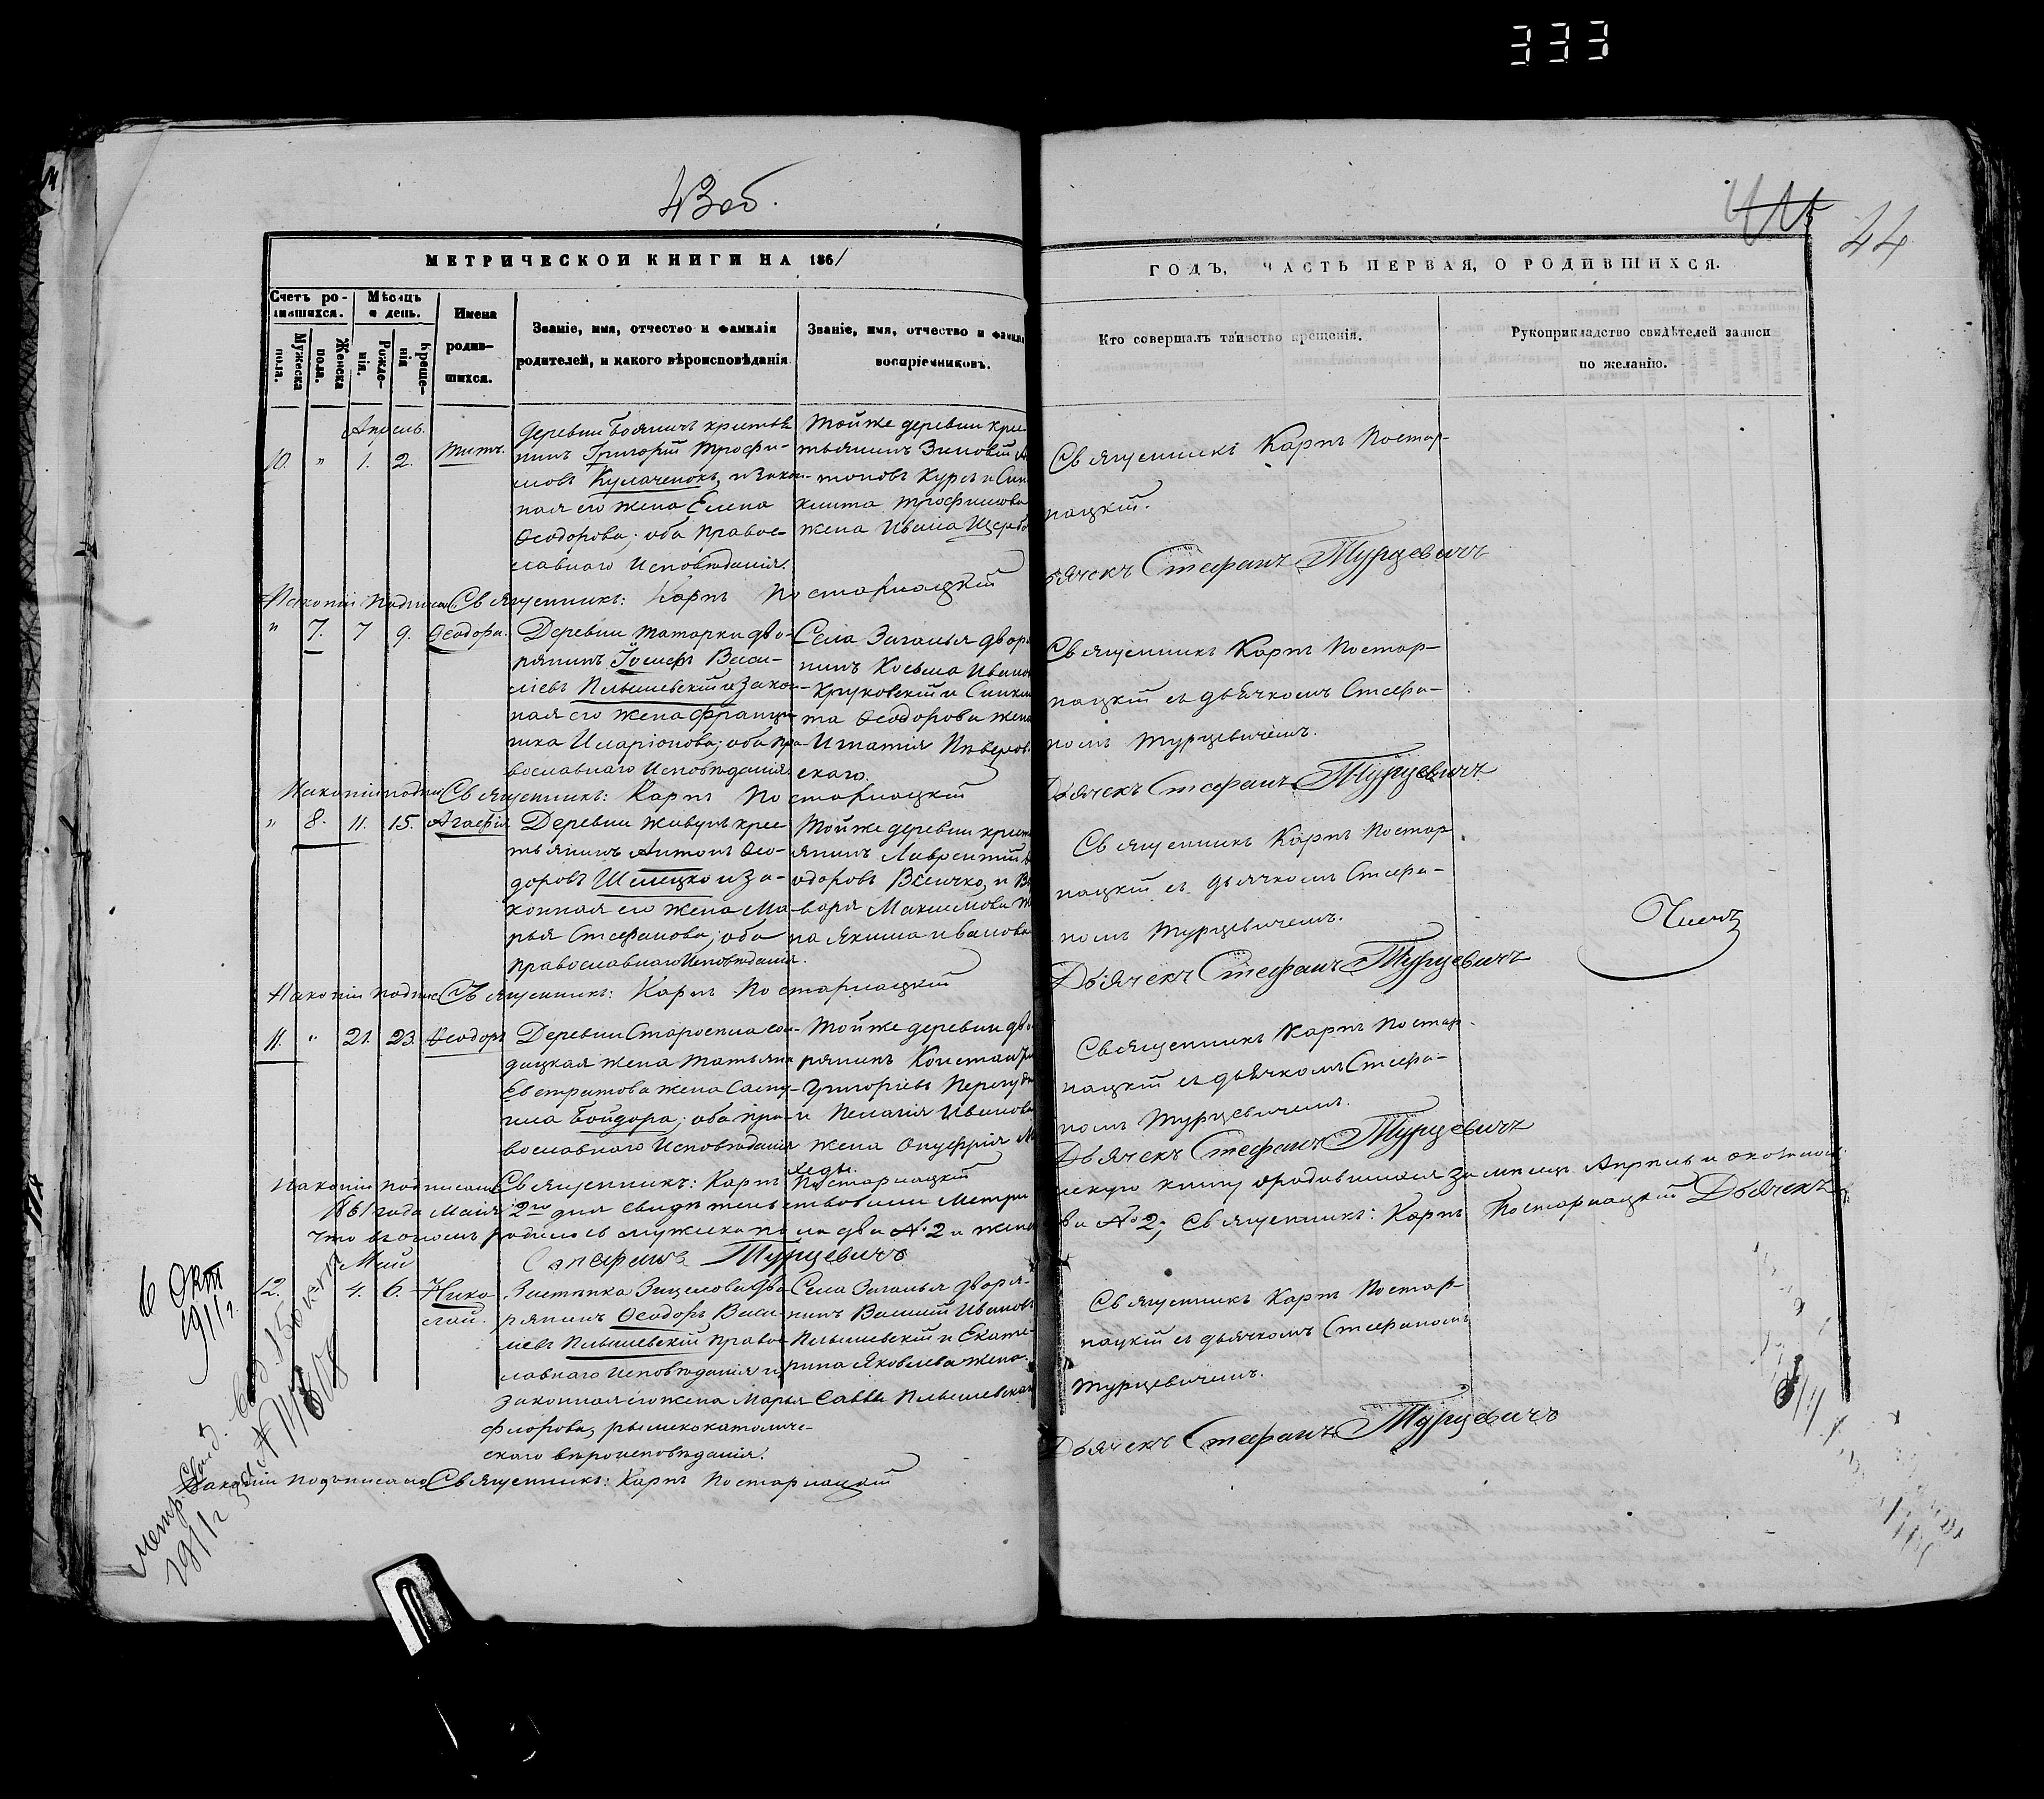 333
43 об.
44
МЕТРИЧЕСКОЙ КНИГИ НА 1861
ГОДЪ, ЧАСТЬ ПЕРВАЯ, О РОДИВШИХСЯ.
Счетъ родившихся.
Мужеска пола.
Женска пола.
Мѣсяцъ и день.
Рожденія.
Крещенія
Имена родившихся.
Званіе, имя, отчество и фамилія
родителей, и какого вѣроисповѣданія
Званіе, имя, отчество и фамилія
воспріемниковъ.
Кто совершалъ таинство крещенія.
Рукоприкладство свидѣтелей записи
по желанію.
Апрель.
10. " 1. 2. Титъ.
Деревни Бояничъ крестья
нинъ Григорій Трофи-
мовъ Кулаченокъ, и закон-
ная его жена Елена
Ѳеодорова; оба Правос-
лавнаго Исповѣданія.
Той же деревни кре
тьянинъ Зиновій
тоновъ Куръ и Син
клита Трофимова
жена Ивана
Священникъ Карпъ Постар-
нацкій.
Дьячекъ Стефанъ Турцевичъ
Священникъ: Карпъ Постарнацкій
" 7. 7 9. Ѳеодора.
Деревни Татарки дво-
рянинъ Іосифъ Васи-
ліевъ Плышевскій и закон-
ная его жена Францы-
шка Иларіонова; оба пра-
вославнаго Исповѣданія
Села Загалья двор
нинъ Косьма Иванов
Круковскій и Синкли
та Ѳеодорова жена
Игнатія
скаго.
Священникъ Карпъ Постар-
нацкій съ дьячкомъ Стефа-
номъ Турцевичемъ.
Дьячекъ Стефанъ Турцевичъ
Священникъ: Карпъ Постарнацкій
" 8. 11. 15. Агафія
Деревни Живунъ крес
тьянинъ Антонъ Ѳео-
доровъ Шелецко и за-
конная его жена Ма-
рья Стефанова; оба
православнаго Исповѣданія.
Той же деревни крест
янинъ Лаврентій
одоровъ Величко, и В
вара Макимова ж
на Якима Иванова
Священникъ Карпъ Постар
нацкій съ дьячкомъ Стефа-
номъ Турцевичемъ.
Дьячекъ Стефанъ Турцевичъ
Священникъ: Карпъ Постарнацкій
11. " 21. 23. Ѳеодоръ
Деревни Староселла сол-
дацкая жена Татьяна
Евстратова жена
Бондора; оба пра-
вославнаго Исповѣданія
Той же деревни дво
рянинъ Константи
Григорьевъ Перегуд
и Пелагія Иванова
жена Онуфрія М
Священникъ Карпъ Постар-
нацкій съ дьячкомъ Стефа-
номъ Турцевичемъ.
Дьячекъ Стефанъ Турцевичъ
Священникъ: Карпъ Постарнацкій
1861 года Маія 2го дня свидѣтельствовали Метри
ческую книгу о родившихся за месяцъ Апрель и оказалось
что въ ономъ родилось мужеска пола два №2 и женс
ва №2; Священникъ: Карпъ Постарнацкій Дьячекъ
Стефанъ Турцевичъ
Май
12. 4. 6. Нико
лай.
Застѣнка дво
рянинъ Ѳеодоръ Васи-
ліевъ Плышевскій право-
лавнаго Исповѣданія и
законная его жена Марья
Флорова, римскокатоличе-
скаго вѣроисповѣданія.
Села Загалья дворя-
нинъ Василій Ивановъ
Плышевскій и Екате-
рина Яковлева жена
Саввы Плышевскаго
Священникъ Карпъ Постар-
нацкій съ дьячкомъ Стефаномъ
Турцевичемъ.
Дьячекъ Стефанъ Турцевичъ
Священникъ: Карпъ Постарнацкій
6 Окт
1911 г.